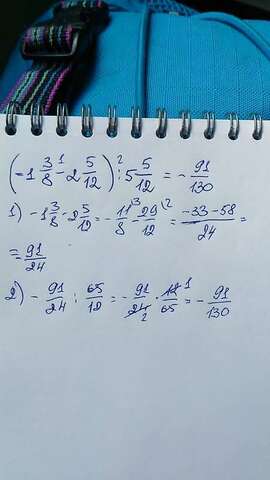 (-1 3/8 ¹- 2 5/12) ²: 5 5/12 = - 91/130
1) -1 3/8 - 2 5/12 = - 11/8 ⁽³ - 29/12 ⁽² = (-33-58)/24 =
= - 91/24
2) - 91/24 : 65/12 = - 91/24 2 · 12/65 1 = - 91/130